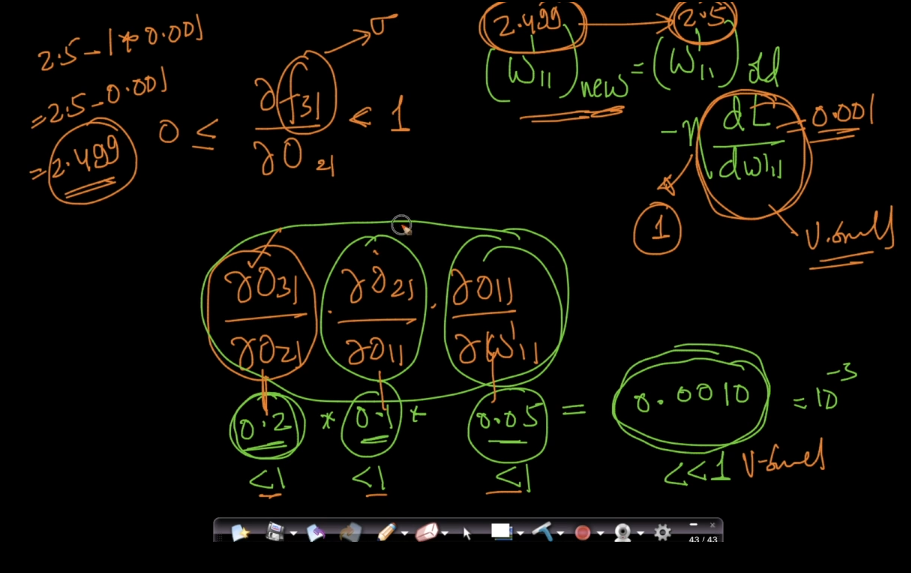 2.5 - 1 * 0.001
= 2.5 - 0.001
= 2.499
0 ≤ ∂f31 / ∂O21 < 1
σ
2.499 → 2.5
(W11)new = (W11)old
- η dL / dW11 = 0.001
1
V. Small
∂O31 / ∂O21 . ∂O21 / ∂O11 . ∂O11 / ∂W'11
0.2 * 0.1 * 0.05 = 0.0010 = 10^-3
<1 <1 <1 <<1 V-Small
43 / 43